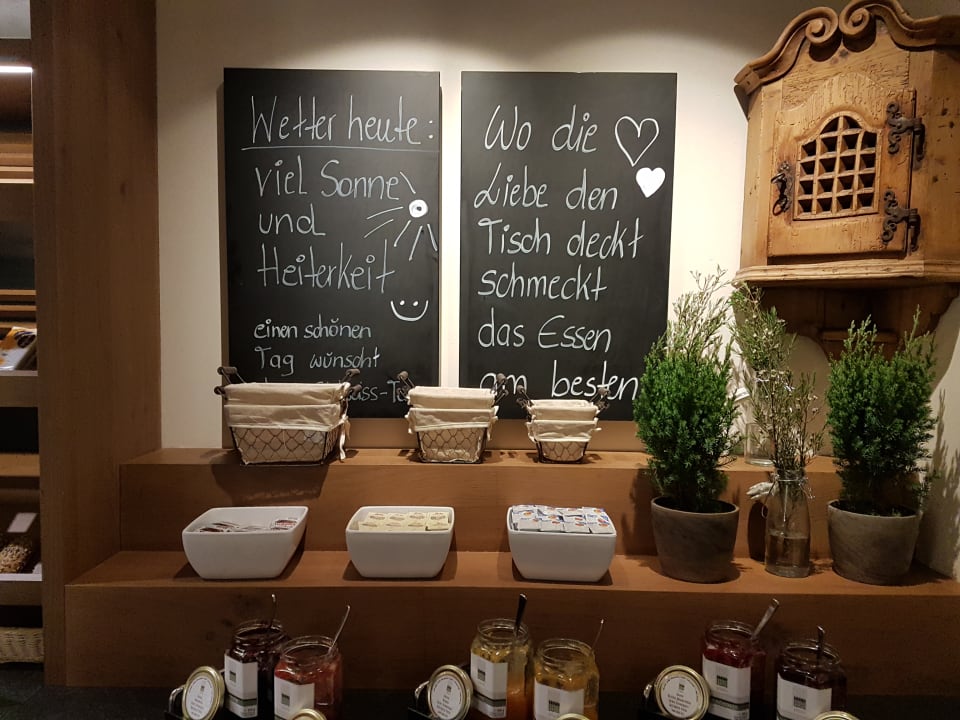 Wetter heute:
viel Sonne
und
Heiterkeit
einen schönen
Tag wünscht
Wo die
Liebe den
Tisch deckt
schmeckt
das Essen
am besten